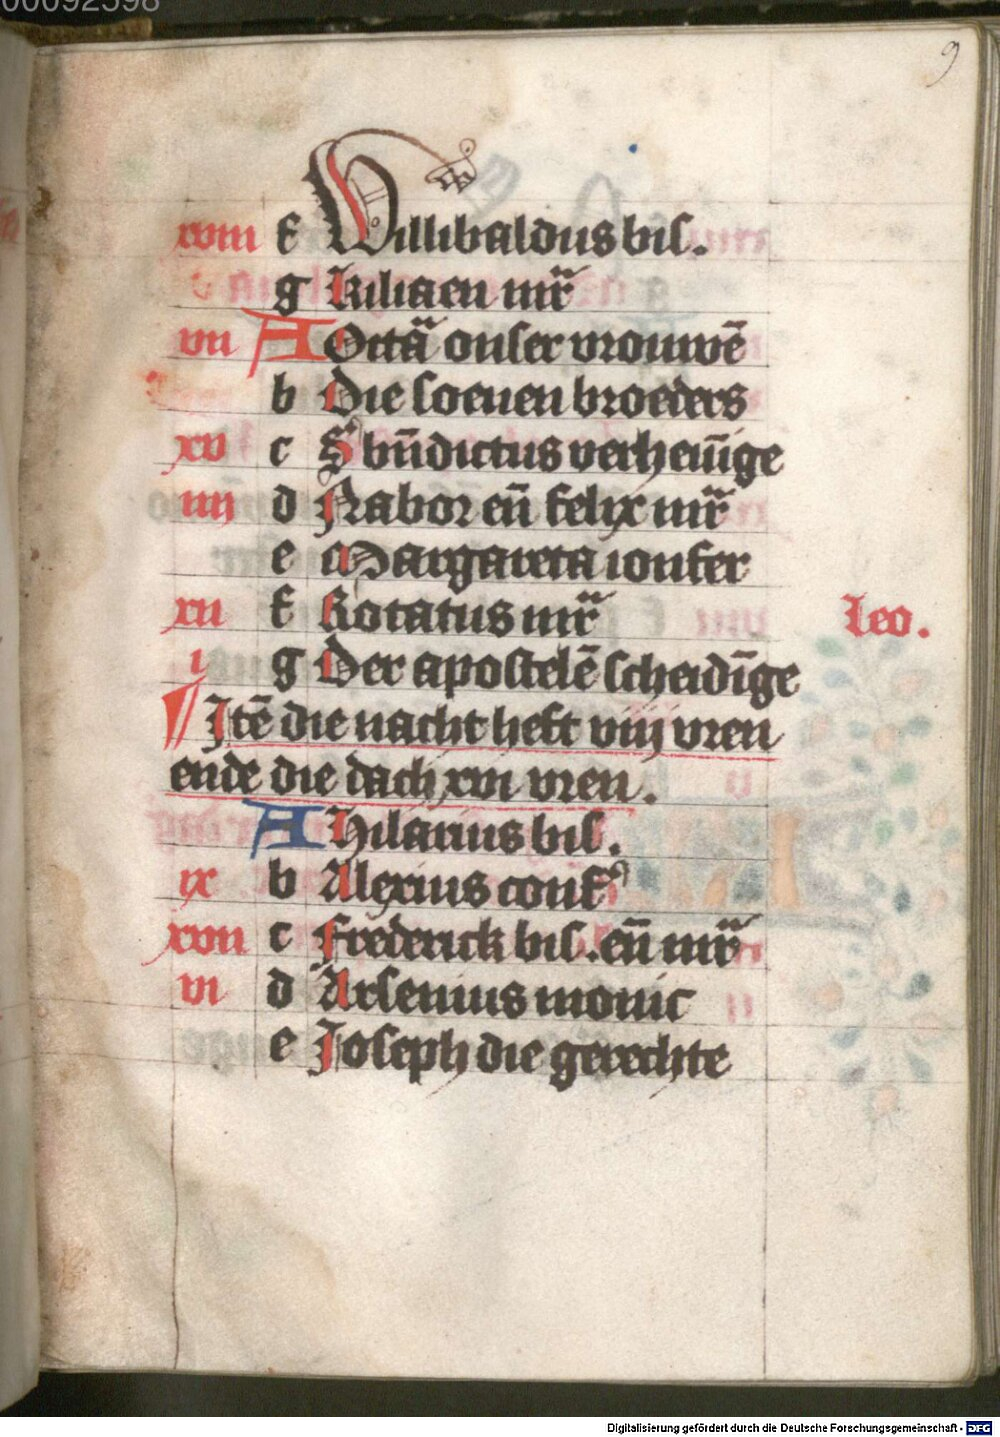 00092598
9
xviii f Willibaldus bis.
g Kiliaen mr̃
vii A Octã onser vrouwē
b Die soeuen broeders
xv c S bñdictus verheuīge
iiij d Nabor eñ felix mr̃
e Margareta ionfer
xii f Rotatus mr̃
Leo.
i g Der apostelē scheidīge
¶ Itē die nacht heft viij vren
ende die dach xvi vren.
A Hilarius bis.
ix b Alexius conf
xvii c Frederick bis. eñ mr̃
vi d Arsenius monic
e Joseph die gerechte
Digitalisierung gefördert durch die Deutsche Forschungsgemeinschaft - DFG